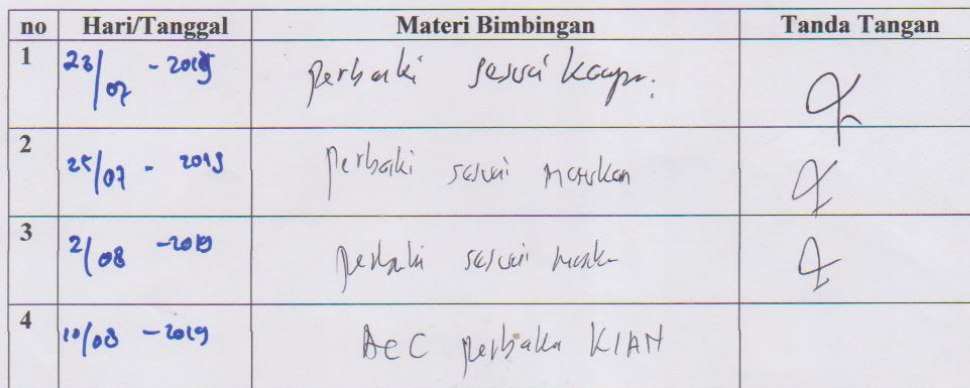 no Hari/Tanggal Materi Bimbingan Tanda Tangan
1 23/07 - 2019 perbaiki sesuai
2 25/07 - 2019 perbaiki sesuai masukan
3 2/08 - 2019 perbaiki sesuai
4 10/08 - 2019 ACC perbaika KIAN